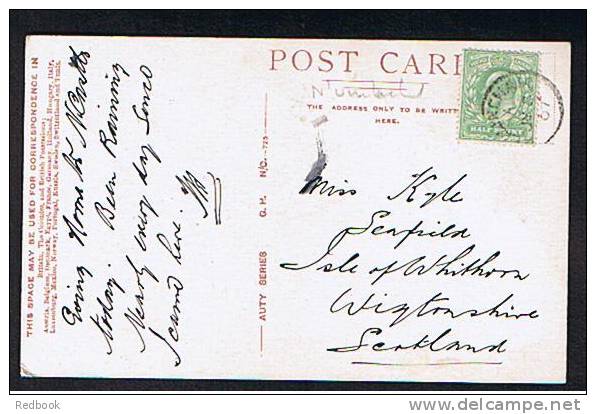 POST CARD
THE ADDRESS ONLY TO BE WRITTEN
HERE.
HALFPENNY
07
THIS SPACE MAY BE USED FOR CORRESPONDENCE IN
Britain, The Colonies, and British Possessions;
Austria, Belgium, Denmark, Egypt, France, Germany, Holland, Hungary, Italy,
Luxemburg, Mexico, Norway, Portugal, Russia, Sweden, Switzerland and Tunis.
Going Home to
today. Been Raining
Nearly every day Since
I came here.
AUTY SERIES G. H. N/C.-725
Miss Kyle
Seafield
Isle of Whithorn
Wigtonshire
Scotland
Redbook
http://www.delcampe.net